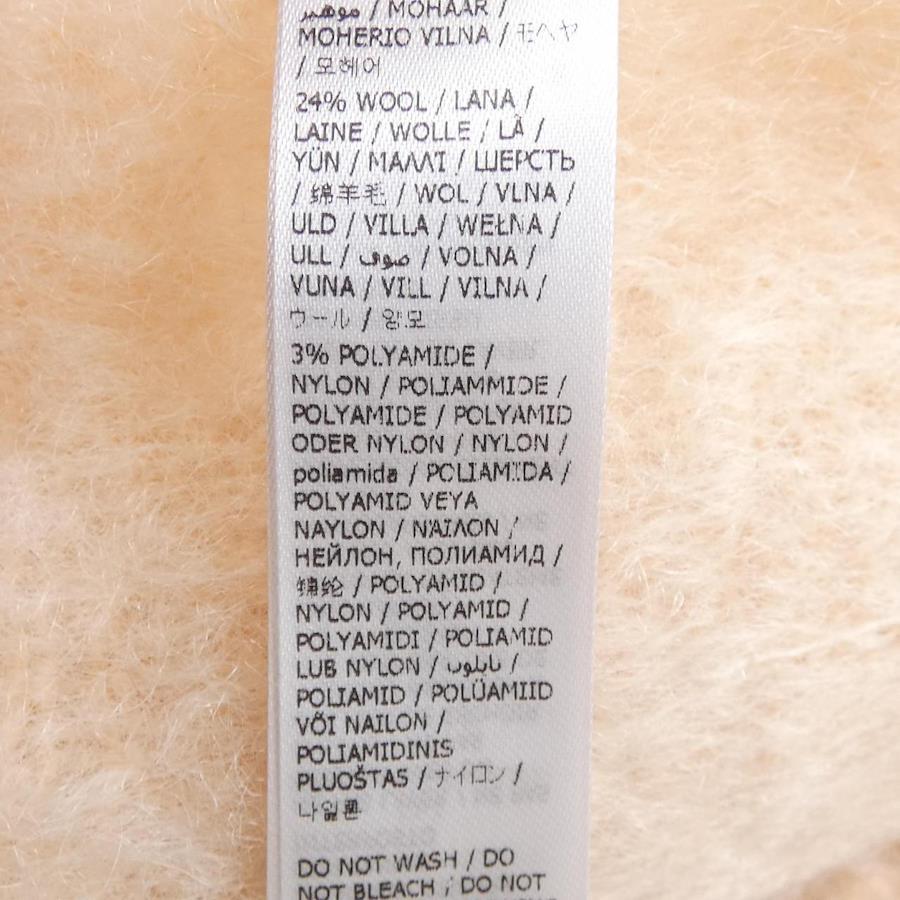 موهير / MOHAAR /
MOHERIO VILNA / モヘヤ
/ 모헤어
24% WOOL / LANA /
LAINE / WOLLE / LÃ /
YÜN / ΜΑΛΛΙ / ШЕРСТЬ
/ 绵羊毛 / WOL / VLNA /
ULD / VILLA / WEŁNA /
ULL / صوف / VOLNA /
VUNA / VILL / VILNA /
ウール / 양모
3% POLYAMIDE /
NYLON / POLIAMMIDE /
POLYAMIDE / POLYAMID
ODER NYLON / NYLON /
poliamida / POLIAMIDA /
POLYAMID VEYA
NAYLON / ΝΑΙΛΟΝ /
НЕЙЛОН, ПОЛИАМИД /
锦纶 / POLYAMID /
NYLON / POLYAMID /
POLYAMIDI / POLIAMID
LUB NYLON / نايلون /
POLIAMID / POLÜAMIID
VÕI NAILON /
POLIAMIDINIS
PLUOŠTAS / ナイロン /
나일론
DO NOT WASH / DO
NOT BLEACH / DO NOT